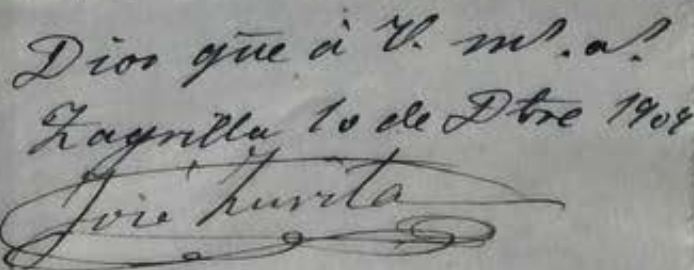 Dios gūe à V. mˢ. aˢ.
Zagrilla 10 de Dbre 1909
José Zurita